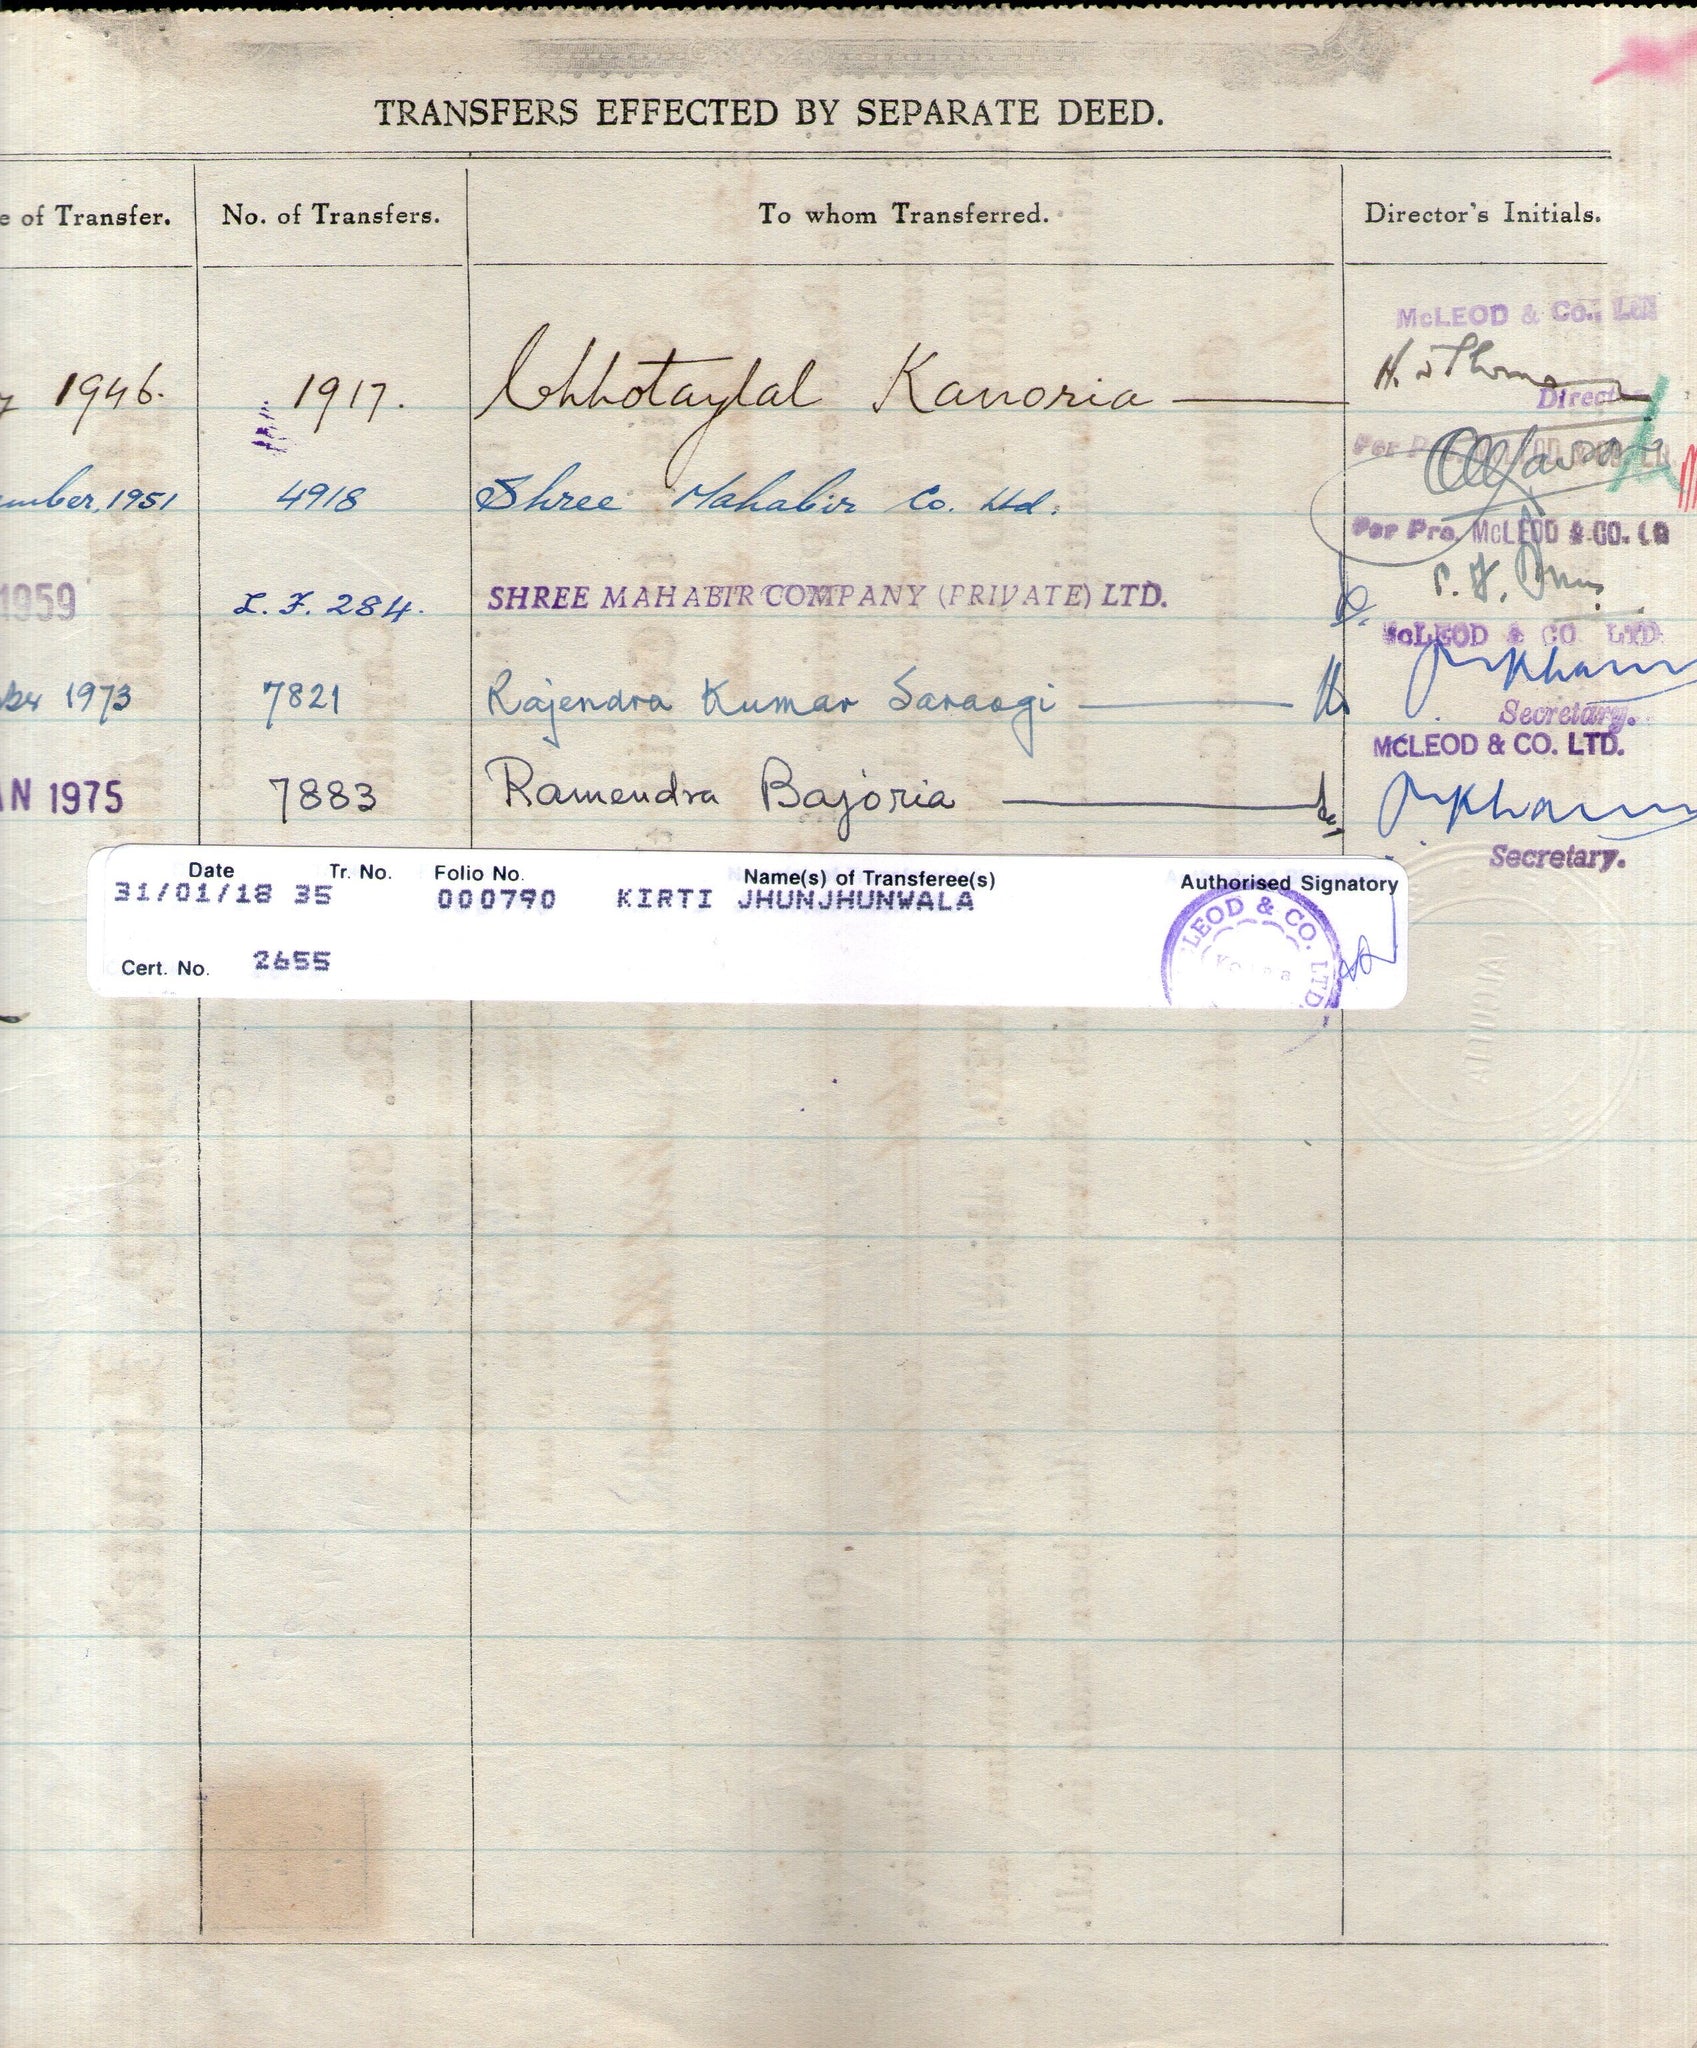 TRANSFERS EFFECTED BY SEPARATE DEED.
e of Transfer. No. of Transfers. To whom Transferred. Director's Initials.
McLEOD & Co., Ltd
1946. 1917. Chhotaylal Kanoria H. S Thomas
Director
Per Pro. McLEOD & CO. LD
ember, 1951 4918 Shree Mahabir Co. Ltd.
Per Pro. McLEOD & CO. LD
1959 L. F. 284. SHREE MAHABIR COMPANY (PRIVATE) LTD.
McLEOD & CO LTD
ber 1973 7821 Rajendra Kumar Saraogi
Secretary.
MCLEOD & CO. LTD.
AN 1975 7883 Ramendra Bajoria
Secretary.
Date Tr. No. Folio No. Name(s) of Transferee(s) Authorised Signatory
31/01/18 35 000790 KIRTI JHUNJHUNWALA
Cert. No. 2655
McLEOD & CO. LTD.